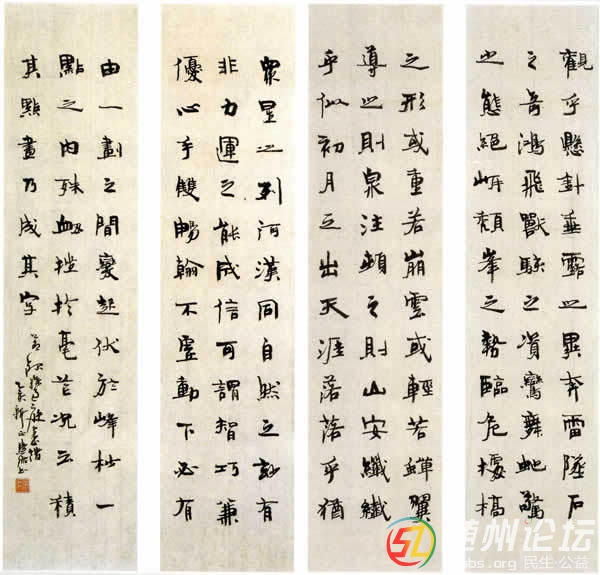 觀乎懸針垂露之異奔雷墜石
之奇鴻飛獸駭之資鸞舞蛇驚
之態絕岸頹峯之勢臨危據槁
之形或重若崩雲或輕若蟬翼
導之則泉注頓之則山安纖纖
乎似初月之出天涯落落乎猶
眾星之列河漢同自然之妙有
非力運之能成信可謂智巧兼
優心手雙暢翰不虛動下必有
由一劃之間變起伏於峰杪一
點之內殊衄挫於毫芒況云積
其點畫乃成其字
随州论坛
民生·公益